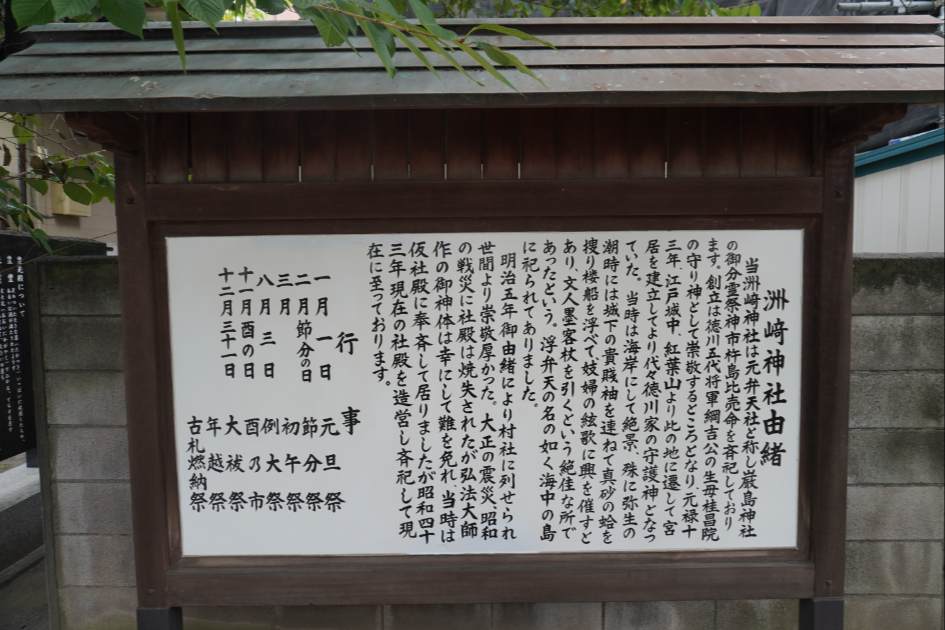 洲﨑神社由緒
当洲﨑神社は元弁天社と称し厳島神社
の御分霊祭神市杵島比売命を斉祀しており
ます。創立は徳川五代将軍綱吉公の生母桂昌院
の守り神として崇敬するところとなり、元禄十
三年、江戸城中、紅葉山より此の地に遷して宮
居を建立してより代々徳川家の守護神となっ
ていた。当時は海岸にして絶景、殊に弥生の
潮時には城下の貴賤袖を連ねて真砂の蛤を
捜り楼船を浮べて妓婦の絃歌に興を催すと
あり、文人墨客杖を引くという絶佳な所で
あったという。浮弁天の名の如く海中の島
に祀られてありました。
明治五年御由緒により村社に列せられ
世間より崇敬厚かった。大正の震災、昭和
の戦災に社殿は焼失されたが弘法大師
作の御神体は幸にして難を免れ、当時は
仮社殿に奉斉して居りましたが昭和四十
三年現在の社殿を造営し斉祀して現
在に至っております。
行事
一月一日 元旦祭
二月節分の日 節分祭
三月 初午祭
八月三日 例大祭
十月酉の日 酉乃市
十二月三十一日 大祓祭
年越祭
古札燃納祭